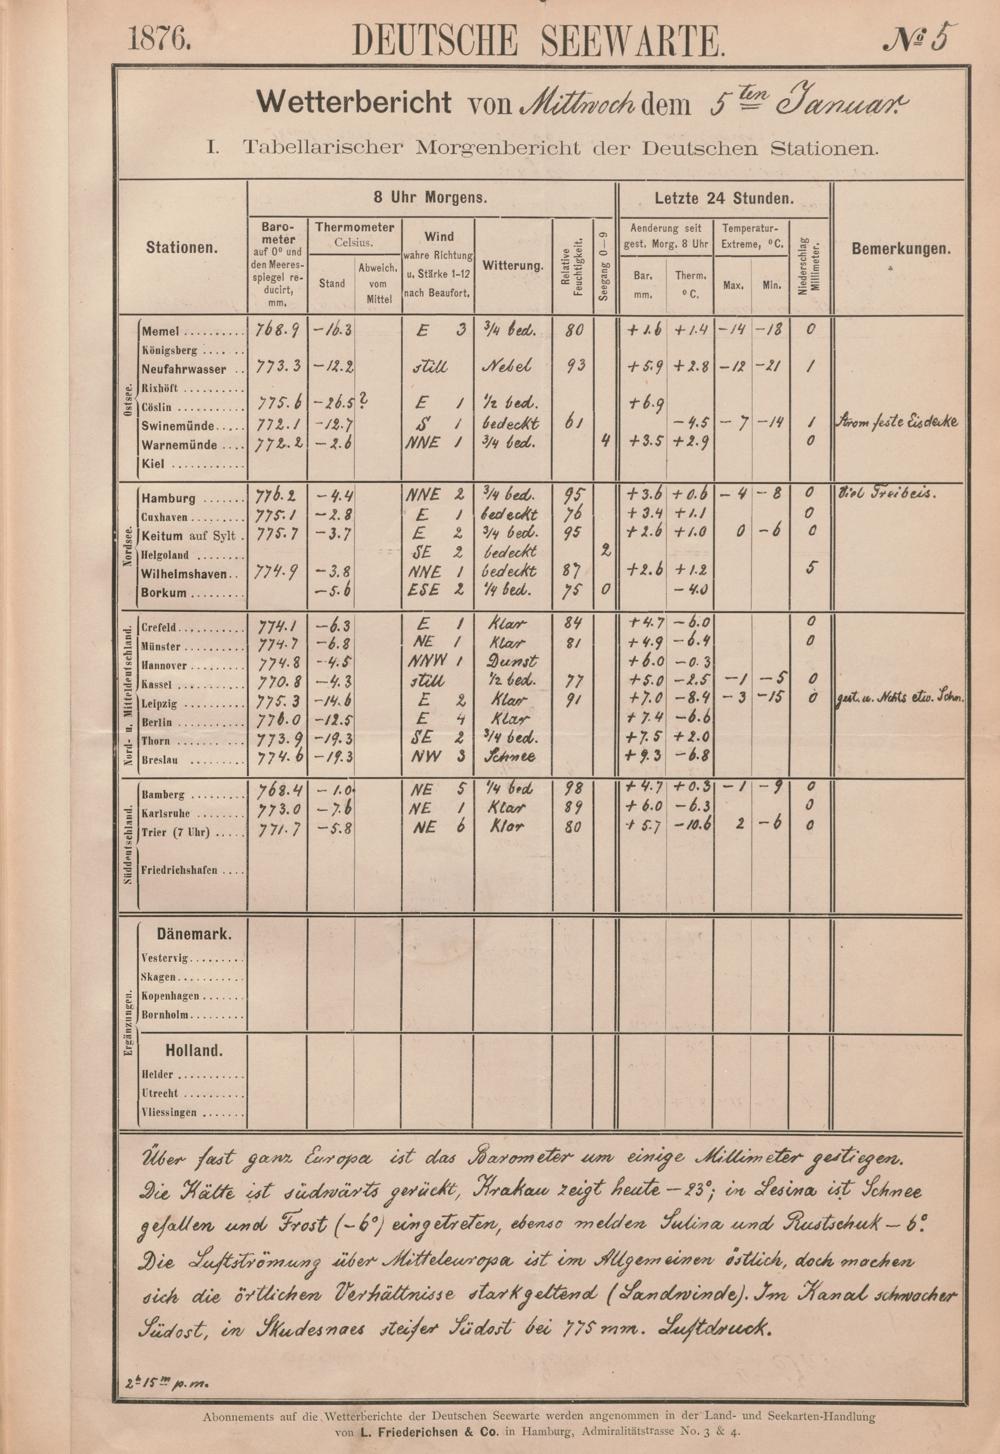 1876. DEUTSCHE SEEWARTE. No 5
Wetterbericht von Mittwoch dem 5ten Januar.
I. Tabellarischer Morgenbericht der Deutschen Stationen.
Stationen. 8 Uhr Morgens. Letzte 24 Stunden. Bemerkungen.
Barometer auf 0° und den Meeresspiegel reducirt, mm. Thermometer Celsius. Stand Abweich. vom Mittel Wind wahre Richtung u. Stärke 1-12 nach Beaufort. Witterung. Relative Feuchtigkeit. Seegang 0—9 Aenderung seit gest. Morg. 8 Uhr Bar. mm. Therm. °C. Temperatur-Extreme, °C. Max. Min. Niederschlag Millimeter.
Ostsee.
Memel 768.9 -16.3 E 3 3/4 bed. 80 +1.6 +1.4 -14 -18 0
Königsberg
Neufahrwasser 773.3 -12.2 still Nebel 93 +5.9 +2.8 -12 -21 1
Rixhöft
Cöslin 775.6 -26.5? E 1 1/2 bed. +6.9
Swinemünde 772.1 -12.7 S 1 bedeckt 61 -4.5 -7 -14 1 Strom feste Eisdecke
Warnemünde 772.2 -2.6 NNE 1 3/4 bed. 4 +3.5 +2.9 0
Kiel
Nordsee.
Hamburg 776.2 -4.4 NNE 2 3/4 bed. 95 +3.6 +0.6 -4 -8 0 Viel Treibeis.
Cuxhaven 775.1 -2.8 E 1 bedeckt 76 +3.4 +1.1 0
Keitum auf Sylt 775.7 -3.7 E 2 3/4 bed. 95 +2.6 +1.0 0 -6 0
Helgoland SE 2 bedeckt 2
Wilhelmshaven 774.9 -3.8 NNE 1 bedeckt 87 +2.6 +1.2 5
Borkum -5.6 ESE 2 1/4 bed. 75 0 -4.0
Nord- u. Mitteldeutschland.
Crefeld 774.1 -6.3 E 1 Klar 84 +4.7 -6.0 0
Münster 774.7 -6.8 NE 1 Klar 81 +4.9 -6.4 0
Hannover 774.8 -4.5 NNW 1 Dunst +6.0 -0.3
Kassel 770.8 -4.3 still 1/2 bed. 77 +5.0 -2.5 -1 -5 0
Leipzig 775.3 -14.6 E 2 Klar 91 +7.0 -8.4 -3 -15 0 gest. u. Nchts etw. Schn.
Berlin 776.0 -12.5 E 4 Klar +7.4 -6.6
Thorn 773.9 -19.3 SE 2 3/4 bed. +7.5 +2.0
Breslau 774.6 -19.3 NW 3 Schnee +9.3 -6.8
Süddeutschland.
Bamberg 768.4 -1.0 NE 5 1/4 bed 98 +4.7 +0.3 -1 -9 0
Karlsruhe 773.0 -7.6 NE 1 Klar 89 +6.0 -6.3 0
Trier (7 Uhr) 771.7 -5.8 NE 6 Klar 80 +5.7 -10.6 2 -6 0
Friedrichshafen
Ergänzungen.
Dänemark.
Vestervig
Skagen
Kopenhagen
Bornholm
Holland.
Helder
Utrecht
Vliessingen
Über fast ganz Europa ist das Barometer um einige Millimeter gestiegen.
Die Kälte ist südwärts gerückt, Krakau zeigt heute -23°; in Lesina ist Schnee
gefallen und Frost (-6°) eingetreten, ebenso melden Sulina und Rustschuk -6°.
Die Luftströmung über Mitteleuropa ist im Allgemeinen östlich, doch machen
sich die örtlichen Verhältnisse stark geltend (Landwinde). Im Kanal schwacher
Südost, in Skudesnaes steifer Südost bei 775 mm. Luftdruck.
2h 15m p.m.
Abonnements auf die Wetterberichte der Deutschen Seewarte werden angenommen in der Land- und Seekarten-Handlung
von L. Friederichsen & Co. in Hamburg, Admiralitätstrasse No. 3 & 4.